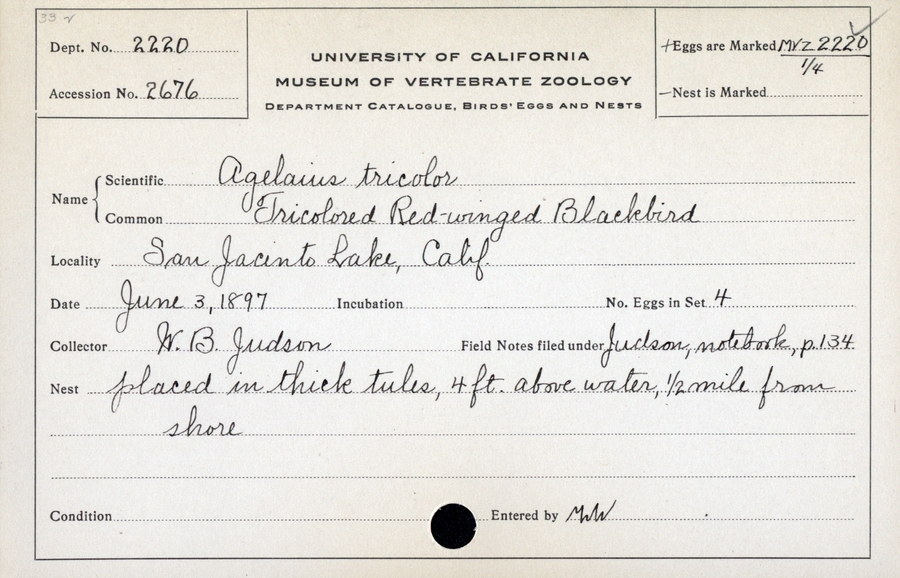 Dept. No. 2220
Accession No. 2676
UNIVERSITY OF CALIFORNIA
MUSEUM OF VERTEBRATE ZOOLOGY
DEPARTMENT CATALOGUE, BIRDS' EGGS AND NESTS
+Eggs are Marked MVZ 2220
1/4
—Nest is Marked
Name
Scientific Agelaius tricolor
Common Tricolored Red-winged Blackbird
Locality San Jacinto Lake, Calif.
Date June 3, 1897 Incubation No. Eggs in Set 4
Collector W. B. Judson Field Notes filed under Judson, notebook, p.134
Nest placed in thick tules, 4 ft. above water, 1/2 mile from
shore
Condition Entered by